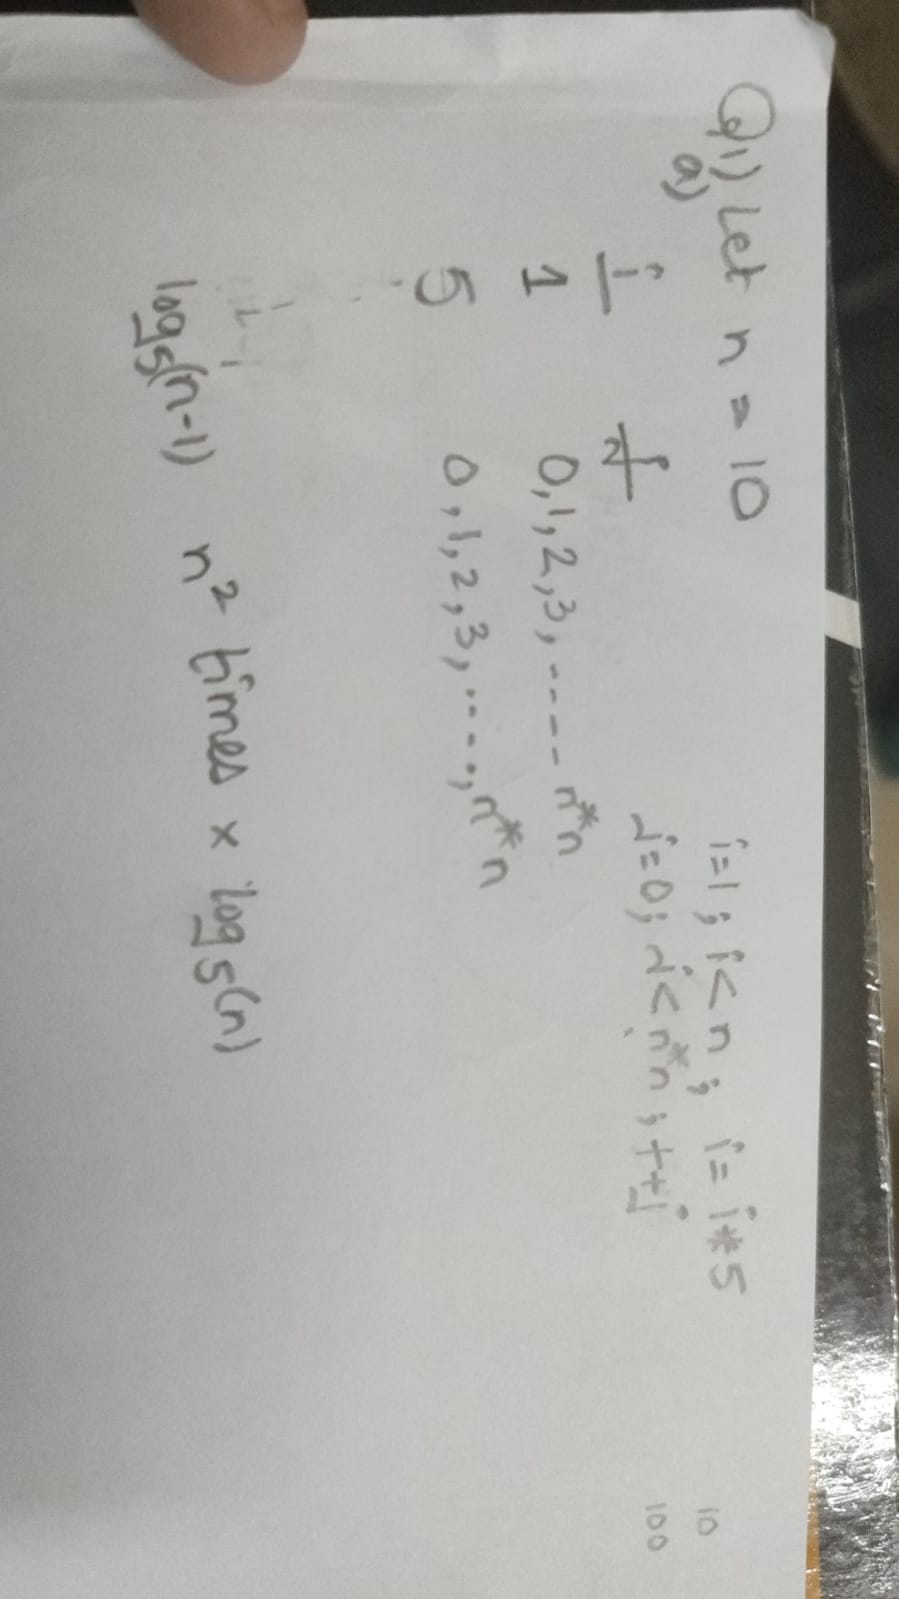 Q1) Let n = 10
i=1; i<n; i=i*5
10
a)
j=0; j<n*n; ++j
100
i j
1 0,1,2,3,---- n*n
5 0,1,2,3,----,n*n
log5(n-1) n² times x log5(n)